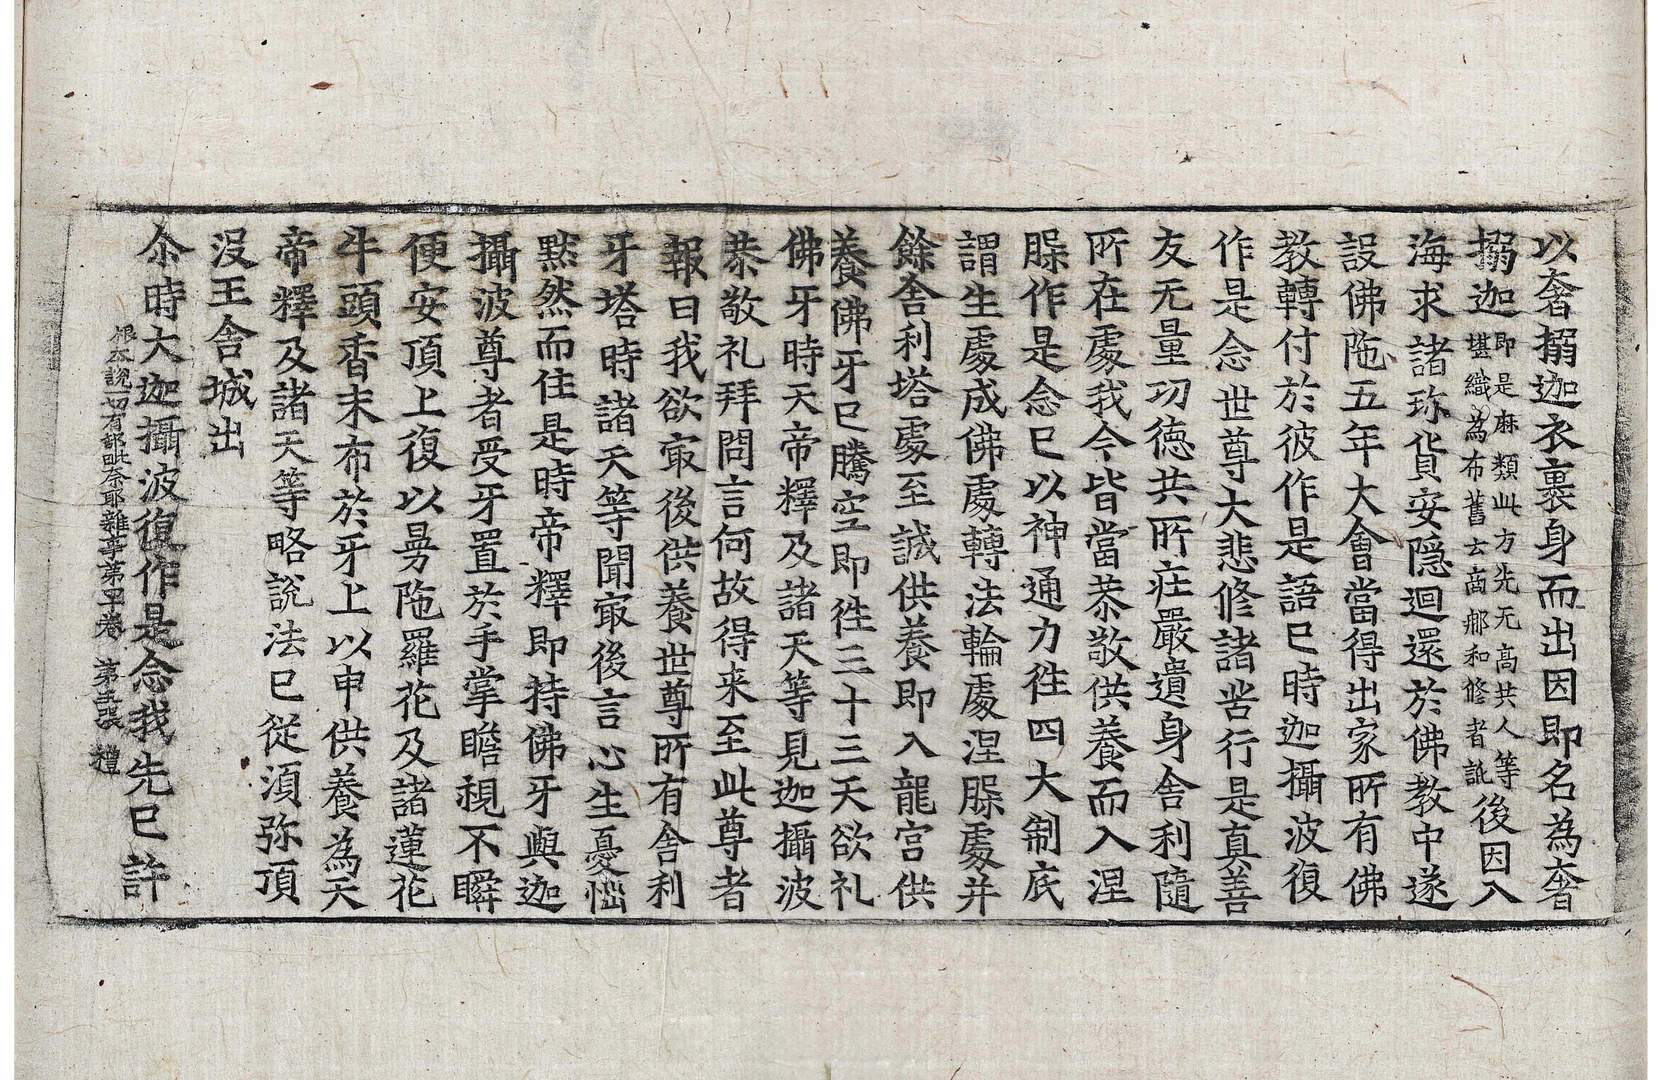 以奢搦迦衣裏身而出因即名為奢
搦迦即是麻類此方先无高共人等堪織為布舊云啇那和修者訛後因入
海求諸珎貨安隱迴還於佛教中遂
設佛陁五年大會當得出家所有佛
教轉付於彼作是語已時迦攝波復
作是念世尊大悲修諸苦行是真善
友无量功德共所莊嚴遺身舍利隨
所在處我今皆當恭敬供養而入涅
䏶作是念已以神通力徃四大制底
謂生處成佛處轉法輪處涅䏶處并
餘舍利塔處至誠供養即入龍宮供
養佛牙已騰空即徃三十三天欲礼
佛牙時天帝釋及諸天等見迦攝波
恭敬礼拜問言何故得来至此尊者
報曰我欲㝡後供養世尊所有舍利
牙塔時諸天等聞㝡後言心生憂惱
黙然而住是時帝釋即持佛牙與迦
攝波尊者受牙置於手掌瞻視不瞬
便安頂上復以曼陁羅花及諸蓮花
牛頭香末布於牙上以申供養為天
帝釋及諸天等略說法已從湏弥頂
没王舍城出
尒時大迦攝波復作是念我先已許
根本說一切有部毗奈耶雜事第四十卷 第五張 禮